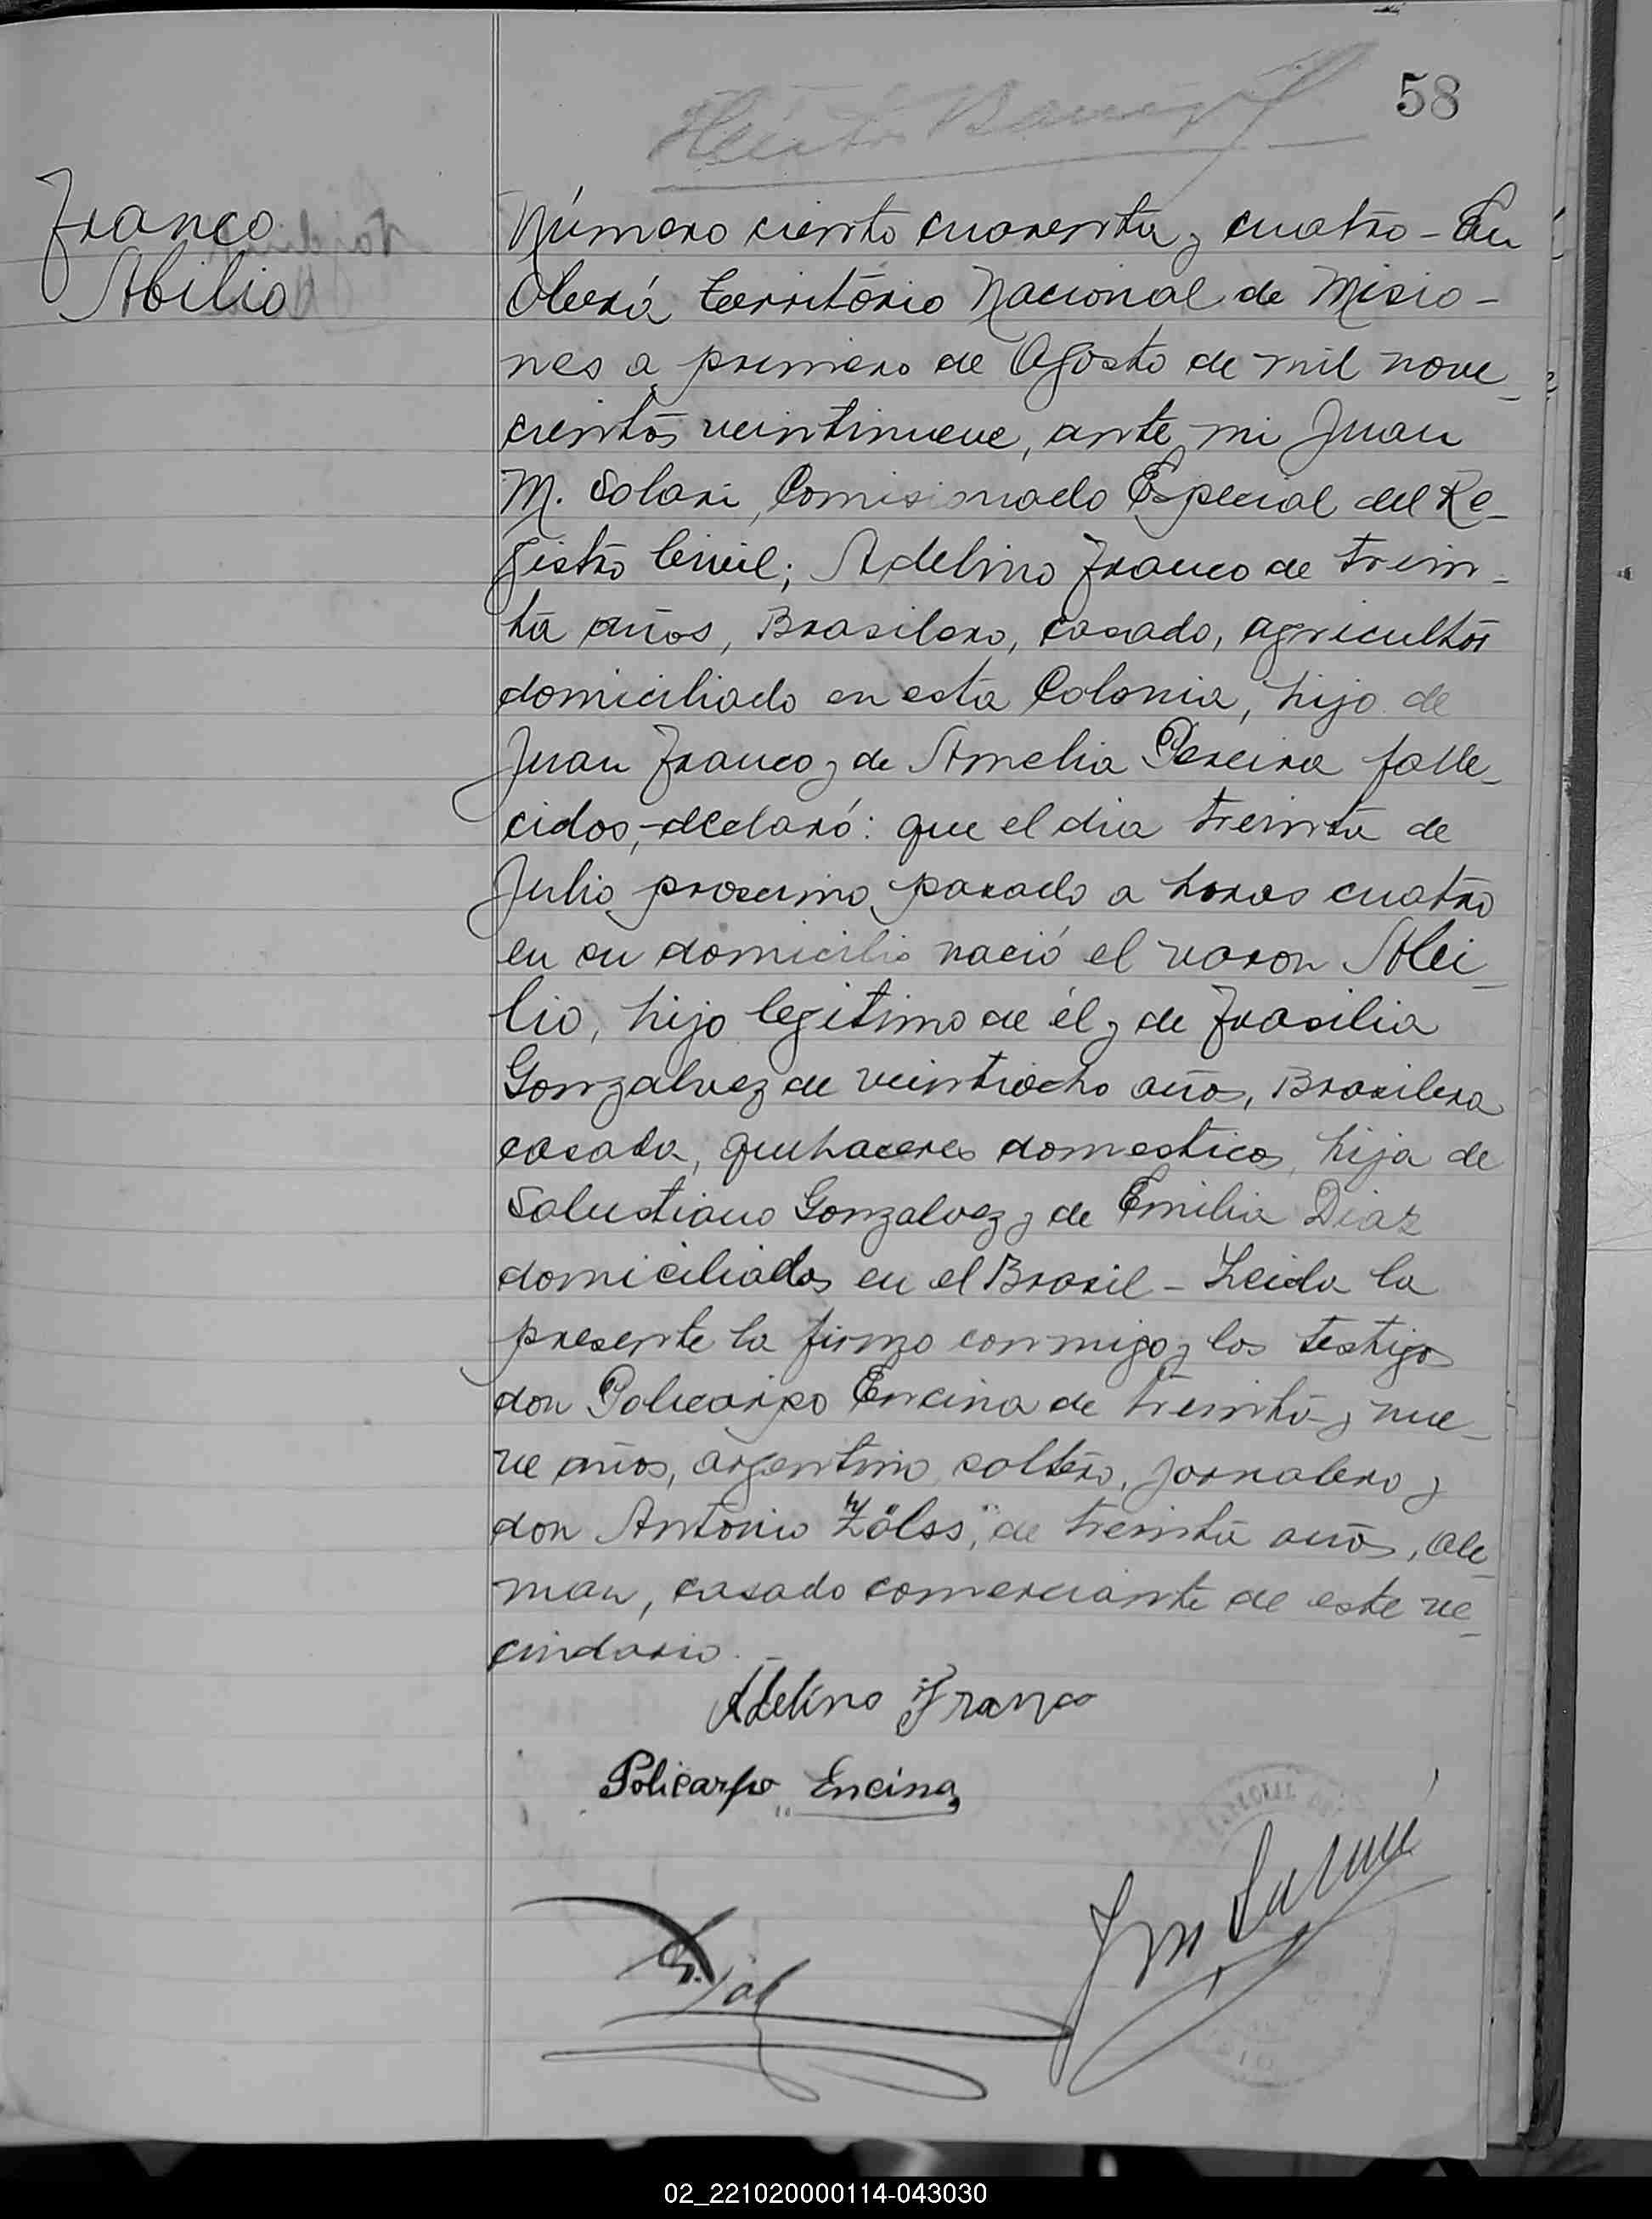 58
Franco
Abilio
Número ciento cuarenta y cuatro - En
Oberá território Nacional de Misio-
nes a primero de Agosto de mil nove-
cientos veintinueve, ante mi Juan
M. Solari, Comisionado Especial del Re-
gistro Civil; Adelino Franco de trein-
ta años, Brasilero, casado, agricultor
domiciliado en esta Colonia, hijo de
Juan Franco y de Amelia Pereira falle-
cidos, declaró: que el dia treinta de
Julio proximo pasado a horas cuatro
en su domicilio nació el varon Abi-
lio, hijo legitimo de él y de Frasilia
Gonzalvez de veintiocho años, Brasilera
casada, quehaceres domesticos, hija de
Salustiano Gonzalvez y de Emilia Diaz
domiciliados en el Brasil - Leida la
presente la firmo conmigo y los testigos
don Policarpo Encina de treinta y nue-
ve años, argentino, soltero, jornalero y
don Antonio "Zölss", de treinta años, ale-
man, casado comerciante de este ve-
cindario. -
Adelino Franco
Policarpo Encina
02_221020000114-043030